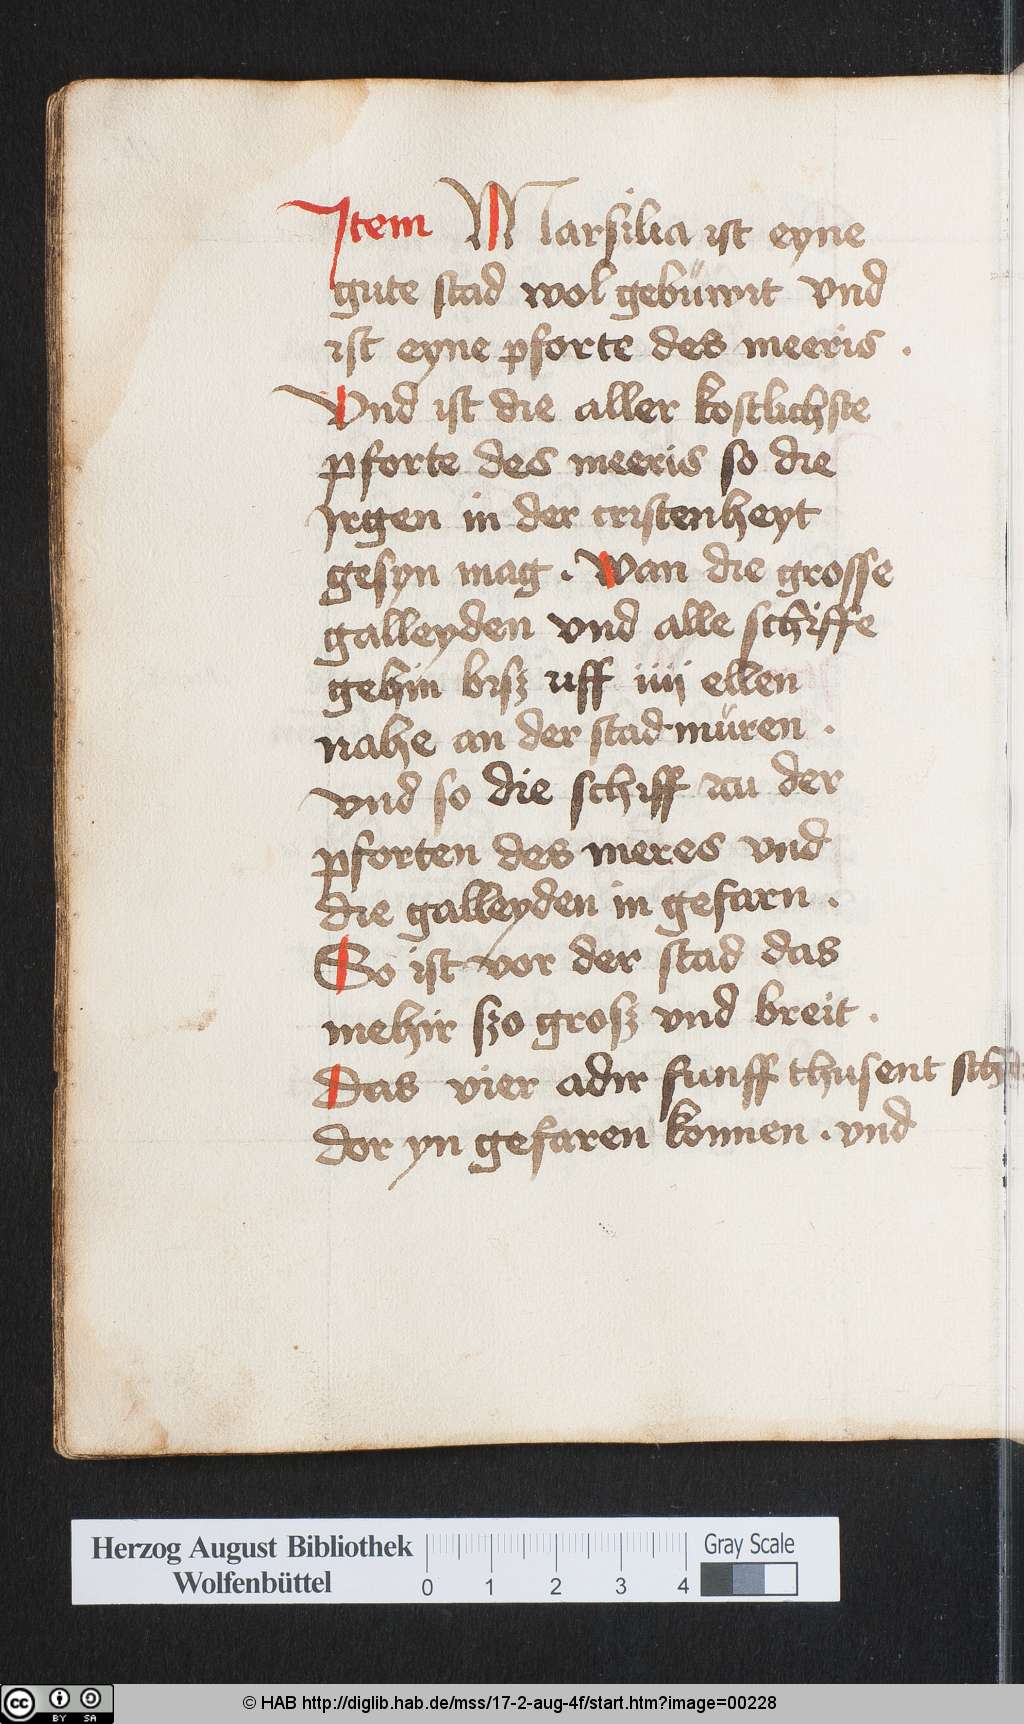 Item Marsilia ist eyne
gute stad wol gebüwit vnd
ist eyne pforte des meeris .
Vnd ist die aller kostlichste
pforte des meeris so die
Jrgen in der cristenheyt
gesyn mag . Wan die grosse
galleyden vnd alle schiffe
gehin bisz uff iiij ellen
nahe an der stad müren .
vnd so die schiff zu der
pforten des meres vnd
die galleyden in gefarn .
So ist vor der stad das
mehir szo grosz vnd breit .
Das vier adir funff thusent
dor yn gefaren konnen . vnd
Herzog August Bibliothek
Wolfenbüttel
0 1 2 3 4
Gray Scale
cc BY SA
© HAB http://diglib.hab.de/mss/17-2-aug-4f/start.htm?image=00228